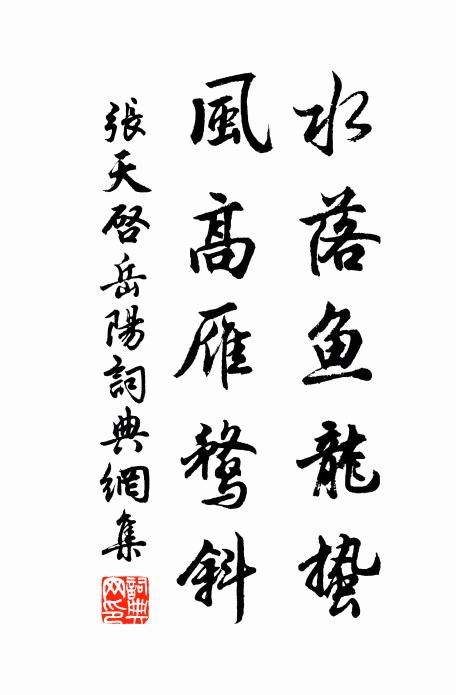 水落鱼龍蛰
風高雁鶩斜
張天啓岳陽詞典網集
詞典网印